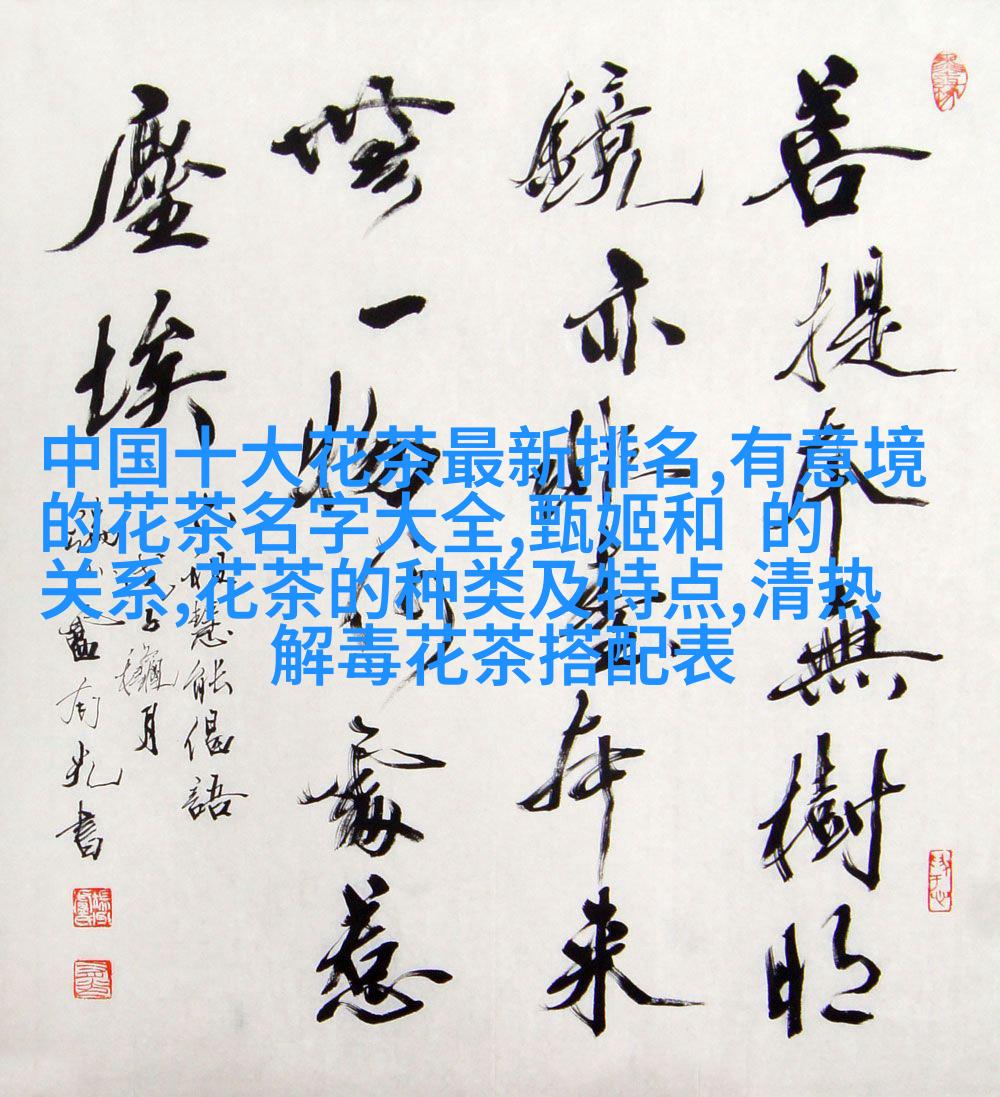 中国十大花茶最新排名,有意境
的花茶名字大全,甄姬和 的
关系,花茶的种类及特点,清热
解毒花茶搭配表
菩提本無樹明
鏡亦非臺本來
無一物何處惹
塵埃
六祖慧能偈語
月
書